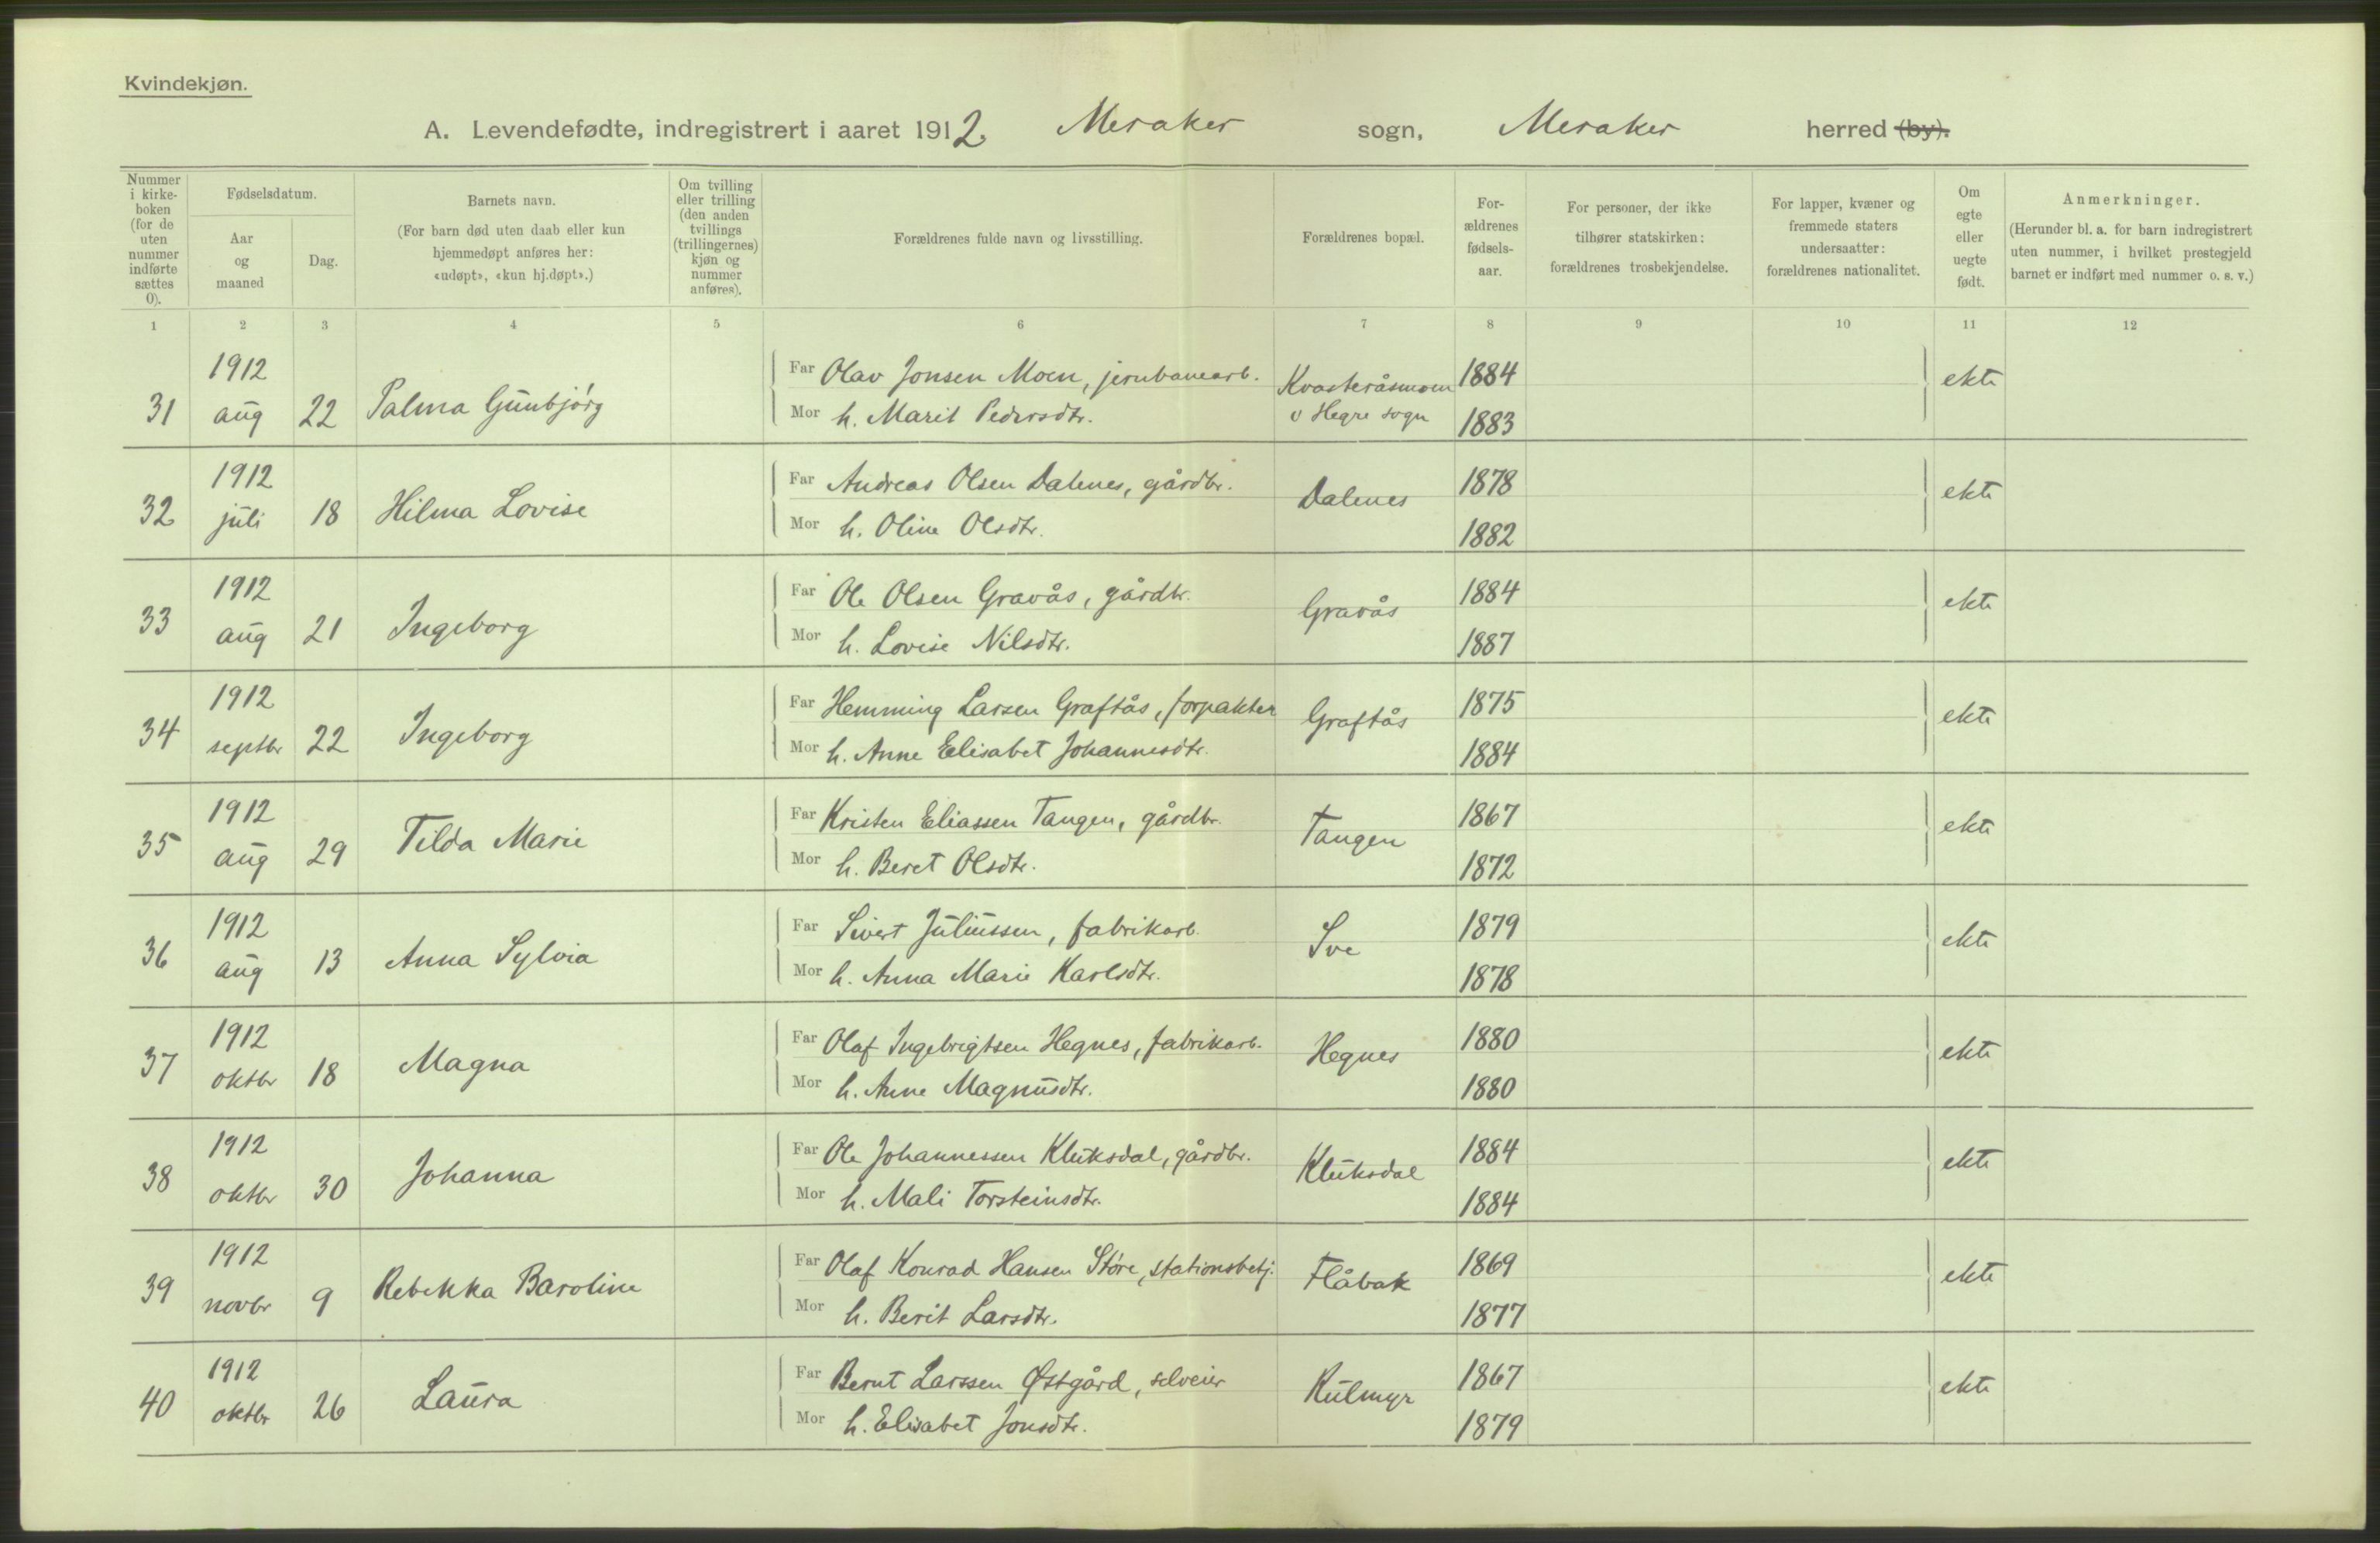 Kvindekjøn.
A. Levendefødte, indregistrert i aaret 1912. Meraker sogn, Meraker herred (by).
Nummer i kirke-boken (for de uten nummer indførte sættes 0).
Fødselsdatum.
Aar og maaned
Dag.
Barnets navn.
(For barn død uten daab eller kun hjemmedøpt anføres her: «udøpt», «kun hj.døpt».)
Om tvilling eller trilling (den anden tvillings (trillingernes) kjøn og nummer anføres).
Forældrenes fulde navn og livsstilling.
Forældrenes bopæl.
For-ældrenes fødsels-aar.
For personer, der ikke tilhører statskirken: forældrenes trosbekjendelse.
For lapper, kvæner og fremmede staters undersaatter: forældrenes nationalitet.
Om egte eller uegte født.
Anmerkninger.
(Herunder bl. a. for barn indregistrert uten nummer, i hvilket prestegjeld barnet er indført med nummer o. s. v.)
1 2 3 4 5 6 7 8 9 10 11 12
1912 Far Olav Jonsen Moen, jernbanearb. Kvasteråsmoen 1884 ekte
31 aug 22 Palma Gunbjørg Mor h. Marit Pedersdtr. v Hegre sogn 1883
1912 Far Andreas Olsen Dalenes, gårdbr. Dalenes 1878 ekte
32 juli 18 Hilma Lovise Mor h. Oline Olsdtr. 1882
1912 Far Ole Olsen Gravås, gårdbr. Gravås 1884 ekte
33 aug 21 Ingeborg Mor h. Lovise Nilsdtr. 1887
1912 Far Hemming Larsen Graftås, forpakter Graftås 1875 ekte
34 septbr 22 Ingeborg Mor h. Anne Elisabet Johannesdtr. 1884
1912 Far Kristen Eliassen Tangen, gårdbr. Tangen 1867 ekte
35 aug 29 Tilda Marie Mor h. Beret Olsdtr. 1872
1912 Far Sivert Juliussen, fabrikarb. Sve 1879 ekte
36 aug 13 Anna Sylvia Mor h. Anna Marie Karlsdtr. 1878
1912 Far Olaf Ingebrigtsen Hegnes, fabrikarb. Hegnes 1880 ekte
37 oktbr 18 Magna Mor h. Anne Magnusdtr. 1880
1912 Far Ole Johannessen Kluksdal, gårdbr. Kluksdal 1884 ekte
38 oktbr 30 Johanna Mor h. Mali Torsteinsdtr. 1884
1912 Far Olaf Konrad Hansen Støre, stationsbetj. Flåbak 1869 ekte
39 novbr 9 Rebekka Baroline Mor h. Berit Larsdtr. 1877
1912 Far Bernt Larssen Østgård, selveier Kulmyr 1867 ekte
40 oktbr 26 Laura Mor h. Elisabet Jonsdtr. 1879